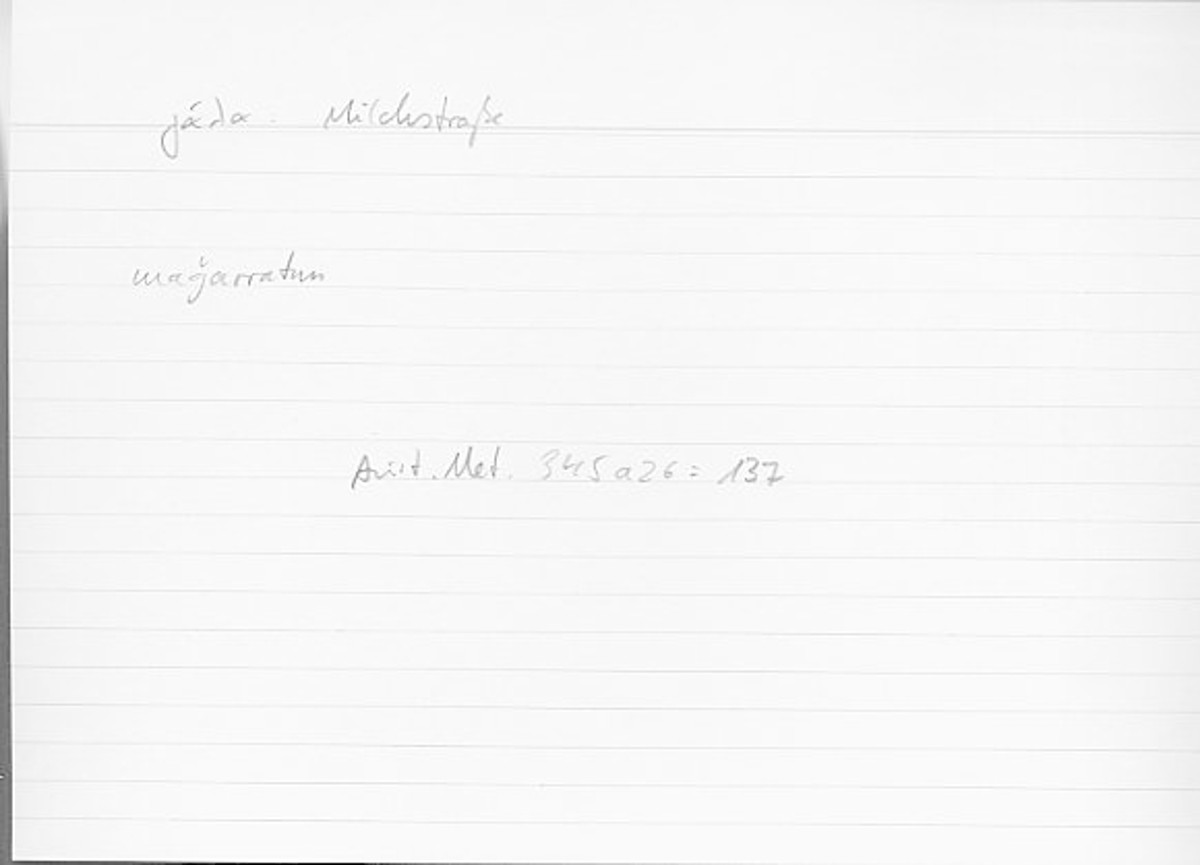 γάλα : Milchstraße
maǧarratun
Arist. Met. 345a26 = 137